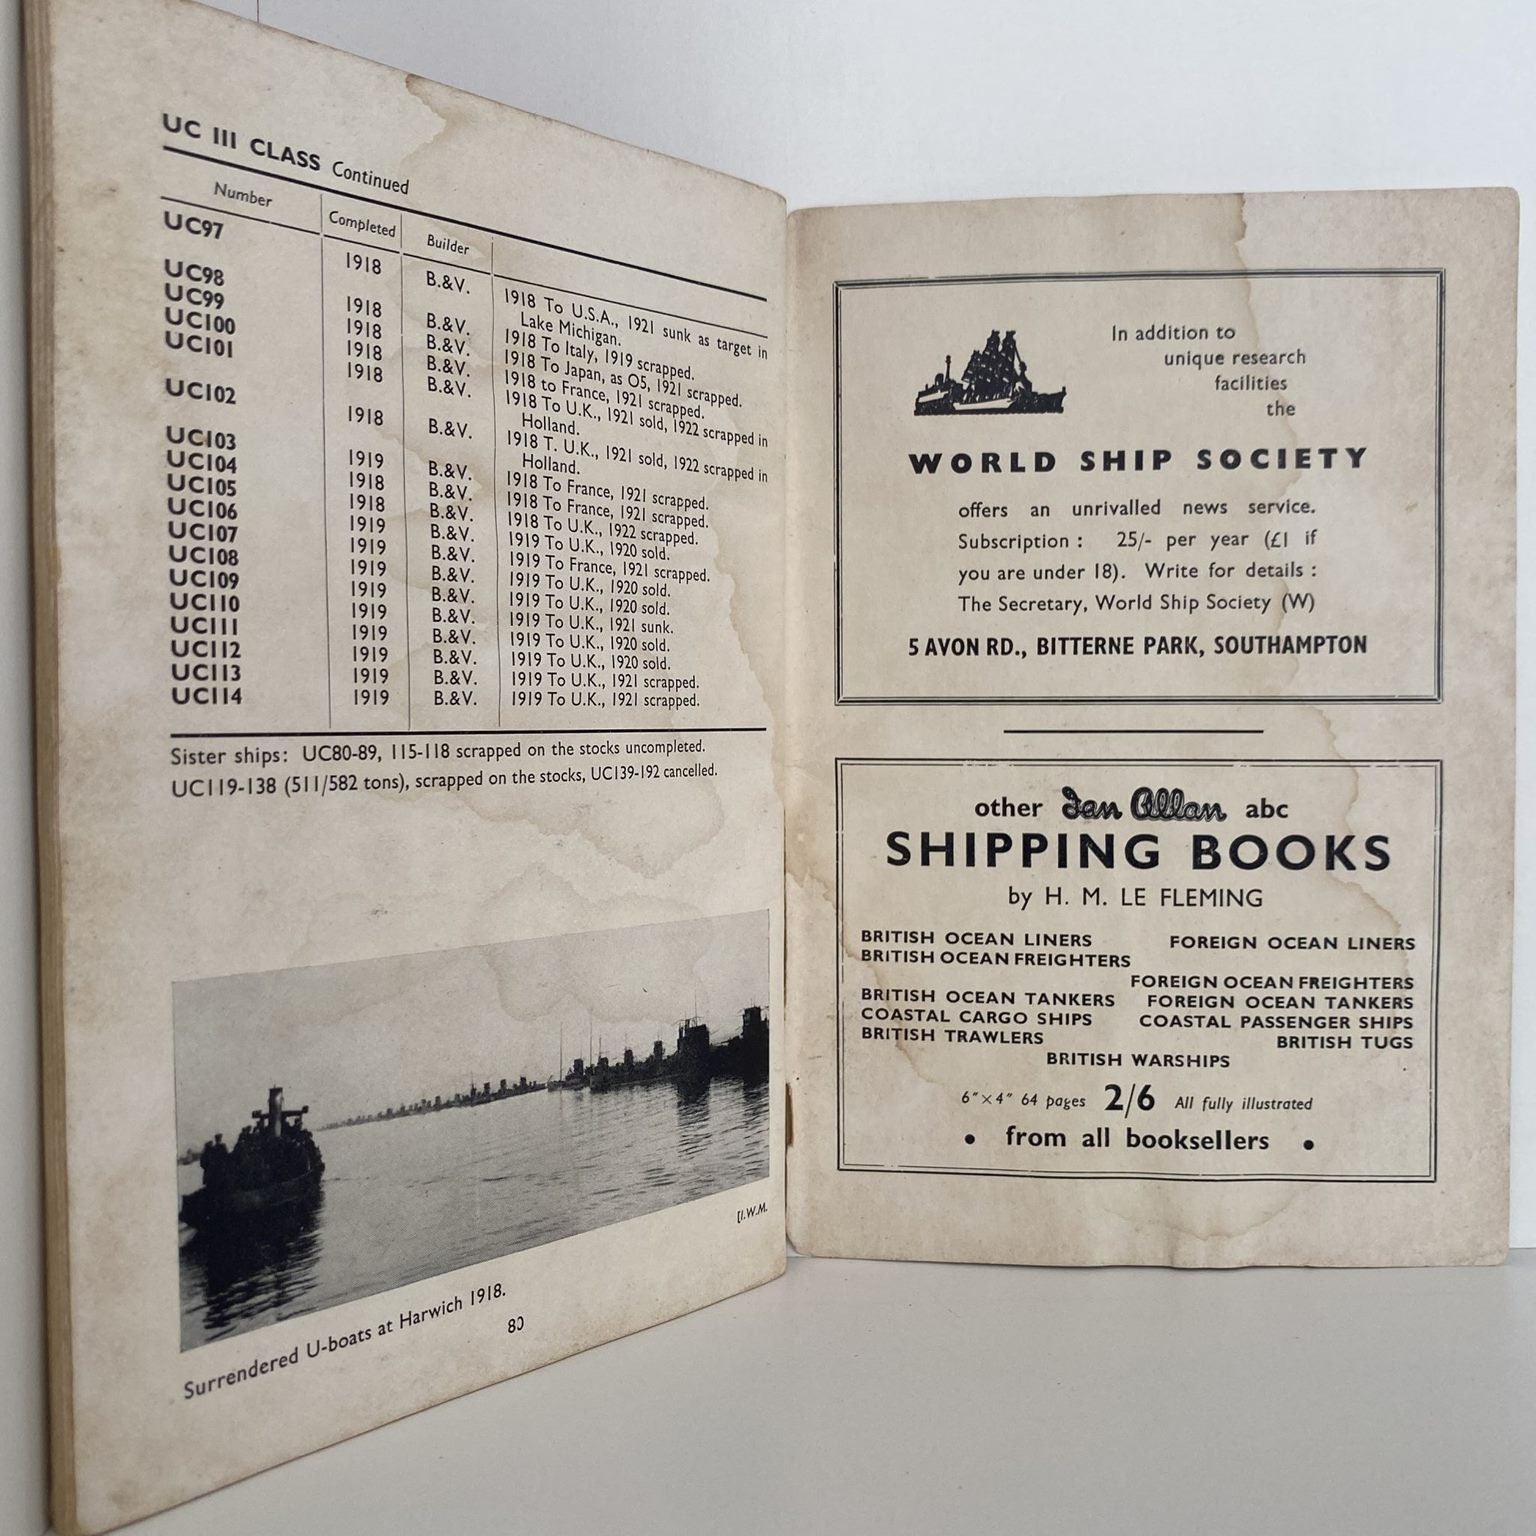 UC III CLASS Continued
Number Completed Builder
UC97 1918 B.&V. 1918 To U.S.A., 1921 sunk as target in
Lake Michigan.
UC98 1918 B.&V. 1918 To Italy, 1919 scrapped.
UC99 1918 B.&V. 1918 To Japan, as O5, 1921 scrapped.
UC100 1918 B.&V. 1918 to France, 1921 scrapped.
UC101 1918 B.&V. 1918 To U.K., 1921 sold, 1922 scrapped in
Holland.
UC102 1918 B.&V. 1918 T. U.K., 1921 sold, 1922 scrapped in
Holland.
UC103 1919 B.&V. 1918 To France, 1921 scrapped.
UC104 1918 B.&V. 1918 To France, 1921 scrapped.
UC105 1918 B.&V. 1918 To U.K., 1922 scrapped.
UC106 1919 B.&V. 1919 To U.K., 1920 sold.
UC107 1919 B.&V. 1919 To France, 1921 scrapped.
UC108 1919 B.&V. 1919 To U.K., 1920 sold.
UC109 1919 B.&V. 1919 To U.K., 1920 sold.
UC110 1919 B.&V. 1919 To U.K., 1921 sunk.
UC111 1919 B.&V. 1919 To U.K., 1920 sold.
UC112 1919 B.&V. 1919 To U.K., 1920 sold.
UC113 1919 B.&V. 1919 To U.K., 1921 scrapped.
UC114 1919 B.&V. 1919 To U.K., 1921 scrapped.
Sister ships: UC80-89, 115-118 scrapped on the stocks uncompleted.
UC119-138 (511/582 tons), scrapped on the stocks, UC139-192 cancelled.
[I.W.M.
Surrendered U-boats at Harwich 1918.
80
In addition to
unique research
facilities
the
WORLD SHIP SOCIETY
offers an unrivalled news service.
Subscription : 25/- per year (£1 if
you are under 18). Write for details :
The Secretary, World Ship Society (W)
5 AVON RD., BITTERNE PARK, SOUTHAMPTON
other Ian Allan abc
SHIPPING BOOKS
by H. M. LE FLEMING
BRITISH OCEAN LINERS FOREIGN OCEAN LINERS
BRITISH OCEAN FREIGHTERS
FOREIGN OCEAN FREIGHTERS
BRITISH OCEAN TANKERS FOREIGN OCEAN TANKERS
COASTAL CARGO SHIPS COASTAL PASSENGER SHIPS
BRITISH TRAWLERS BRITISH TUGS
BRITISH WARSHIPS
6"×4" 64 pages 2/6 All fully illustrated
• from all booksellers •